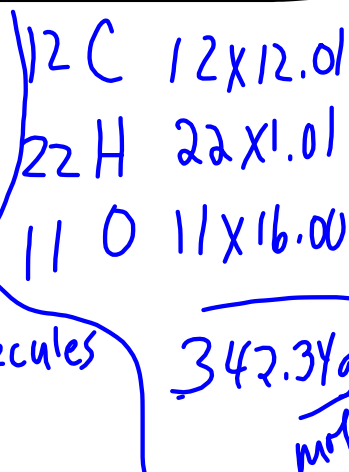 12 C 12x12.01
22 H 22x1.01
11 O 11x16.00
342.34
mol